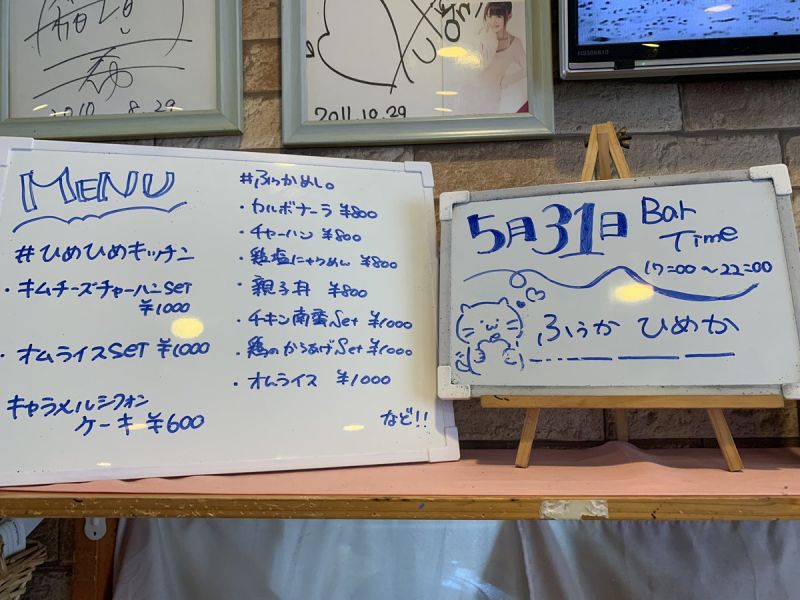 2010 8.29
2011.10.29
HD306610
MENU
#ひめひめキッチン
・キムチーズチャーハンSET
¥1000
・オムライスSET ¥1000
キャラメルシフォン
ケーキ ¥600
#ふぅかめし。
・カルボナーラ ¥800
・チャーハン ¥800
・鶏塩にゃうめん ¥800
・親子丼 ¥800
・チキン南蛮Set ¥1000
・鶏のからあげSet ¥1000
・オムライス ¥1000
など!!
5月31日 Bar
Time
17:00～22:00
ふぅか ひめか